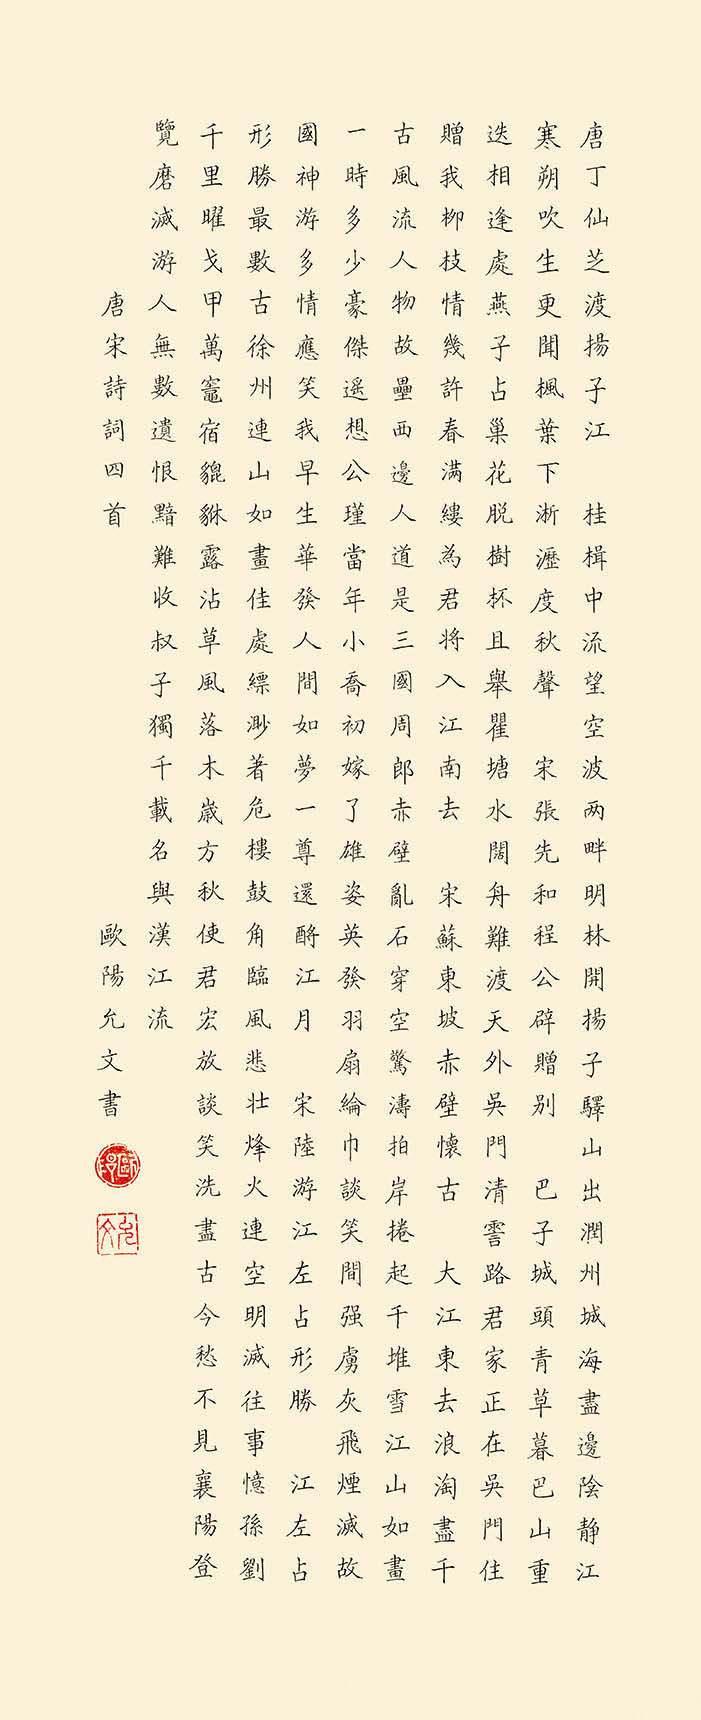 唐丁仙芝渡揚子江　桂楫中流望空波两畔明林開揚子驛山出潤州城海盡邊陰静江
寒朔吹生更聞楓葉下淅瀝度秋聲　宋張先和程公辟贈别　巴子城頭青草暮巴山重
迭相逢處燕子占巢花脱樹杯且舉瞿塘水闊舟難渡天外吳門清霅路君家正在吳門住
贈我柳枝情幾許春滿縷為君将入江南去　宋蘇東坡赤壁懷古　大江東去浪淘盡千
古風流人物故壘西邊人道是三國周郎赤壁亂石穿空驚濤拍岸捲起千堆雪江山如畫
一時多少豪傑遥想公瑾當年小喬初嫁了雄姿英發羽扇綸巾談笑間强虜灰飛煙滅故
國神游多情應笑我早生華發人間如夢一尊還酹江月　宋陸游江左占形勝　江左占
形勝最數古徐州連山如畫佳處縹渺著危樓鼓角臨風悲壮烽火連空明滅往事憶孫劉
千里曜戈甲萬竈宿貔貅露沾草風落木歲方秋使君宏放談笑洗盡古今愁不見襄陽登
覽磨滅游人無數遺恨黯難收叔子獨千載名與漢江流
唐宋詩詞四首　歐陽允文書
歐陽
允文